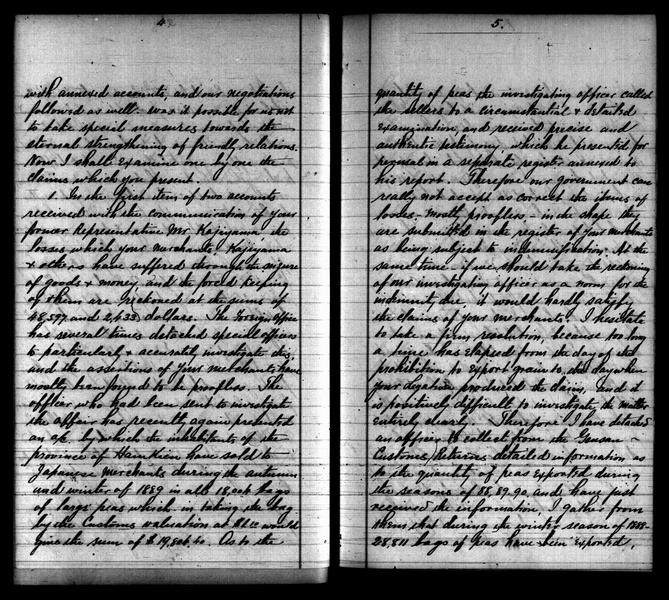 4
with annexed accounts, and our negotiations
followed as well. Was it possible for us not
to take special measures towards the
eternal strengthening of friendly relations.
Now I shall examine one by one the
claims which you present.
1. In the first item of two accounts
received with the communication of your
former Representative Mr Kajiyama the
losses which your merchants Kajiyama
& others have suffered through the seizure
of goods & money, and the forced keeping
of them are reckoned at the sums of
48,597 and 2,433 dollars. The Foreign Office
has several times detached special officers
to particularly & accurately investigate this,
and the assertions of your merchants have
mostly been found to be proofless. The
officer who had been sent to investigate
the affair has recently again presented
an a/c, by which the inhabitants of the
province of Hamkien have sold to
Japanese merchants during the autumn
and winter of 1889 in all 18,006 bags
of large peas which in taking the bag
by the Customs valuation at would
give the sum of As to the
5.
quantity of peas the investigating officer called
the sellers to a circumstantial & detailed
examination, and received precise and
authentic testimony, which he presented for
perusal in a separate register annexed to
his report. Therefore our government can
really not accept as correct the items of
losses - mostly proofless - in the shape they
are submitted in the register of your merchants
as being subject to indemnification. At the
same time if we should take the reckoning
of our investigating officer as a norm for the
indemnity due, it would hardly satisfy
the claims of your merchants. I hesitate
to take a firm resolution, because too long
a time has elapsed from the day of the
prohibition to export grain to, the day when
your Legation produced the claim, and it
is positively difficult to investigate the matter
entirely clearly. Therefore I have detached
an officer to collect from the Gensan -
Customs Returns detailed information as
to the quantity of peas exported during
the seasons of 88, 89, 90, and have just
received the information. I gather from
them that during the winter season of 1888-
28,811 bags of peas have been exported,